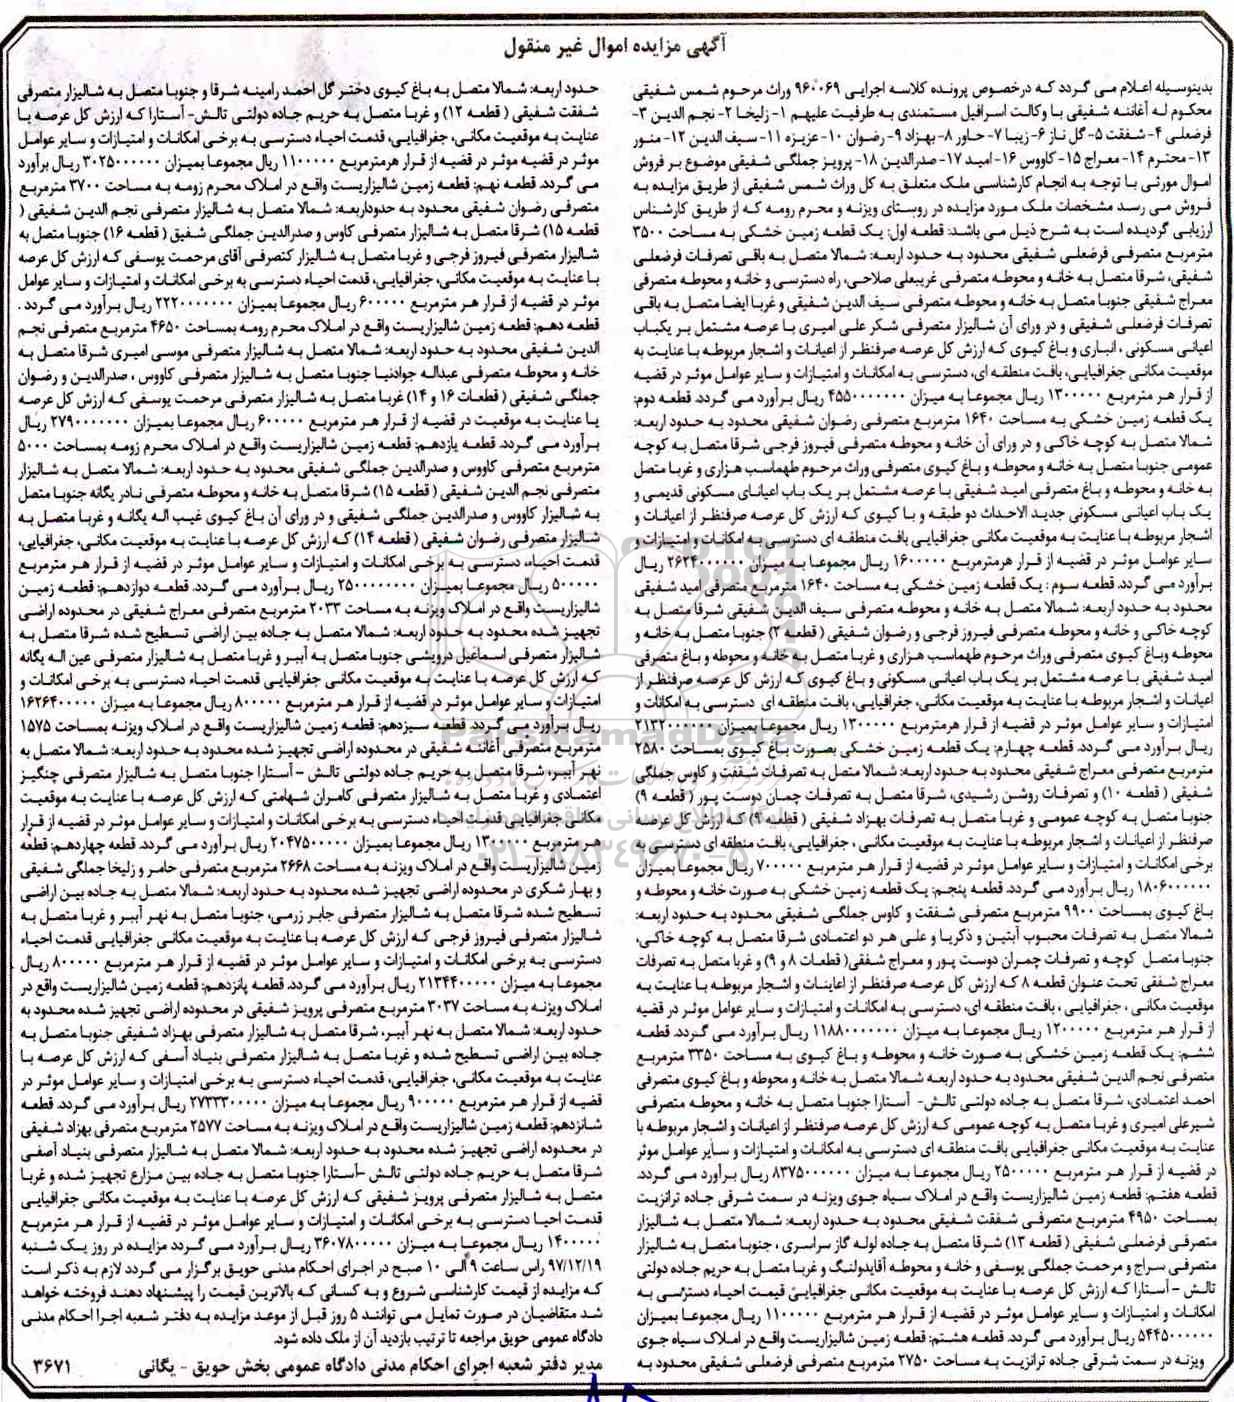 آگهی مزایده اموال غیر منقول
بدینوسیله اعلام می گردد که درخصوص پرونده کلاسه اجرایی ۹۶۰۰۶۹ وراث مرحوم شمس شفیقی
محکوم له آغاننه شفیقی با وکالت اسرافیل مستمندی به طرفیت علیهم ۱- زلیخا ۲- نجم الدین ۳-
فرضعلی ۴- شفقت ۵- گل ناز ۶- زیبا ۷- خاور ۸- بهزاد ۹- رضوان ۱۰- عزیزه ۱۱- سیف الدین ۱۲- منور
۱۳- محترم ۱۴- معراج ۱۵- کاووس ۱۶- امید ۱۷- صدرالدین ۱۸- پرویز جملگی شفیقی موضوع بر فروش
اموال مورثی با توجه به انجام کارشناسی ملک متعلق به کل وراث شمس شفیقی از طریق مزایده به
فروش می رسد مشخصات ملک مورد مزایده در روستای ویزنه و محرم رومه که از طریق کارشناس
ارزیابی گردیده است به شرح ذیل می باشد: قطعه اول: یک قطعه زمین خشکی به مساحت ۳۵۰۰
مترمربع متصرفی فرضعلی شفیقی محدود به حدود اربعه: شمالا متصل به باقی تصرفات فرضعلی
شفیقی، شرقا متصل به خانه و محوطه متصرفی غریبعلی صلاحی، راه دسترسی و خانه و محوطه متصرفی
معراج شفیقی جنوبا متصل به خانه و محوطه متصرفی سیف الدین شفیقی و غربا ایضا متصل به باقی
تصرفات فرضعلی شفیقی و در ورای آن شالیزار متصرفی شکر علی امیری با عرصه مشتمل بر یکباب
اعیانی مسکونی ، انباری و باغ کیوی که ارزش کل عرصه صرفنظر از اعیانات و اشجار مربوطه با عنایت به
موقعیت مکانی جغرافیایی، بافت منطقه ای، دسترسی به امکانات و امتیازات و سایر عوامل موثر در قضیه
از قرار هر مترمربع ۱۳۰۰۰۰۰ ریال مجموعا به میزان ۴۵۵۰۰۰۰۰۰۰ ریال برآورد می گردد. قطعه دوم:
یک قطعه زمین خشکی به مساحت ۱۶۴۰ مترمربع متصرفی رضوان شفیقی محدود به حدود اربعه:
شمالا متصل به کوچه خاکی و در ورای آن خانه و محوطه متصرفی فیروز فرجی شرقا متصل به کوچه
عمومی جنوبا متصل به خانه و محوطه و باغ کیوی متصرفی وراث مرحوم طهماسب هزاری و غربا متصل
به خانه و محوطه و باغ متصرفی امید شفیقی با عرصه مشتمل بر یک باب اعیانای مسکونی قدیمی و
یک باب اعیانی مسکونی جدید الاحداث دو طبقه و با کیوی که ارزش کل عرصه صرفنظر از اعیانات و
اشجار مربوطه با عنایت به موقعیت مکانی جغرافیایی بافت منطقه ای دسترسی به امکانات و امتیازات و
سایر عوامل موثر در قضیه از قرار هرمترمربع ۱۶۰۰۰۰۰ ریال مجموعا به میزان ۲۶۲۴۰۰۰۰۰۰ ریال
برآورد می گردد. قطعه سوم : یک قطعه زمین خشکی به مساحت ۱۶۴۰ مترمربع متصرفی امید شفیقی
محدود به حدود اربعه: شمالا متصل به خانه و محوطه متصرفی سیف الدین شفیقی شرقا متصل به
کوچه خاکی و خانه و محوطه متصرفی فیروز فرجی و رضوان شفیقی ( قطعه ۲) جنوبا متصل به خانه و
محوطه وباغ کیوی متصرفی وراث مرحوم طهماسب هزاری و غربا متصل به خانه و محوطه و باغ متصرفی
امید شفیقی با عرصه مشتمل بر یک باب اعیانی مسکونی و باغ کیوی که ارزش کل عرصه صرفنظر از
اعیانات و اشجار مربوطه با عنایت به موقعیت مکانی، جغرافیایی، بافت منطقه ای دسترسی به امکانات و
امتیازات و سایر عوامل موثر در قضیه از قرار هرمترمربع ۱۳۰۰۰۰۰ ریال مجموعا بمیزان ۲۱۳۲۰۰۰۰۰۰
ریال برآورد می گردد. قطعه چهارم: یک قطعه زمین خشکی بصورت باغ کیوی بمساحت ۲۵۸۰
مترمربع متصرفی معراج شفیقی محدود به حدود اربعه: شمالا متصل به تصرفات شفقت و کاوس جملگی
شفیقی ( قطعه ۱۰) و تصرفات روشن رشیدی، شرقا متصل به تصرفات چمان دوست پور ( قطعه ۹)
جنوبا متصل به کوچه عمومی و غربا متصل به تصرفات بهزاد شفیقی ( قطعه ۹) که ارزش کل عرصه
صرفنظر از اعیانات و اشجار مربوطه با عنایت به موقعیت مکانی ، جغرافیایی، بافت منطقه ای دسترسی به
برخی امکانات و امتیازات و سایر عوامل موثر در قضیه از قرار هر مترمربع ۷۰۰۰۰۰ ریال مجموعا بمیزان
۱۸۰۶۰۰۰۰۰۰ ریال برآورد می گردد. قطعه پنجم: یک قطعه زمین خشکی به صورت خانه و محوطه و
باغ کیوی بمساحت ۹۹۰۰ مترمربع متصرفی شفقت و کاوس جملگی شفیقی محدود به حدود اربعه:
شمالا متصل به تصرفات محبوب آبتین و ذکریا و علی هر دو اعتمادی شرقا متصل به کوچه خاکی،
جنوبا متصل کوچه و تصرفات چمران دوست پور و معراج شفقی( قطعات ۸ و ۹) و غربا متصل به تصرفات
معراج شفقی تحت عنوان قطعه ۸ که ارزش کل عرصه صرفنظر از اعاینات و اشجار مربوطه با عنایت به
موقعیت مکانی ، جغرافیایی ، بافت منطقه ای، دسترسی به امکانات و امتیازات و سایر عوامل موثر در قضیه
از قرار هر مترمربع ۱۲۰۰۰۰۰ ریال مجموعا به میزان ۱۱۸۸۰۰۰۰۰۰۰ ریال برآورد می گردد. قطعه
ششم: یک قطعه زمین خشکی به صورت خانه و محوطه و باغ کیوی به مساحت ۳۳۵۰ مترمربع
متصرفی نجم الدین شفیقی محدود به حدود اربعه شمالا متصل به خانه و محوطه و باغ کیوی متصرفی
احمد اعتمادی، شرقا متصل به جاده دولتی تالش- آستارا جنوبا متصل به خانه و محوطه متصرفی
شیرعلی امیری و غربا متصل به کوچه عمومی که ارزش کل عرصه صرفنظر از اعیانات و اشجار مربوطه با
عنایت به موقعیت مکانی جغرافیایی بافت منطقه ای دسترسی به امکانات و امتیازات و سایر عوامل موثر
در قضیه از قرار هر مترمربع ۲۵۰۰۰۰۰ ریال مجموعا به میزان ۸۳۷۵۰۰۰۰۰۰ ریال برآورد می گردد.
قطعه هفتم: قطعه زمین شالیزاریست واقع در املاک سیاه جوی ویزنه در سمت شرقی جاده ترانزیت
بمساحت ۴۹۵۰ مترمربع متصرفی شفقت شفیقی محدود به حدود اربعه: شمالا متصل به شالیزار
متصرفی فرضعلی شفیقی ( قطعه ۱۳) شرقا متصل به جاده لوله گاز سراسری ، جنوبا متصل به شالیزار
متصرفی سراج و مرحمت جملگی یوسفی و خانه و محوطه آقایدولنگ و غربا متصل به حریم جاده دولتی
تالش - آستارا که ارزش کل عرصه با عنایت به موقعیت مکانی جغرافیایی قیمت احیاء دسترسی به
امکانات و امتیازات و سایر عوامل موثر در قضیه از قرار هر مترمربع ۱۱۰۰۰۰۰ ریال مجموعا بمیزان
۵۴۴۵۰۰۰۰۰۰ ریال برآورد می گردد. قطعه هشتم: قطعه زمین شالیزاریست واقع در املاک سیاه جوی
ویزنه در سمت شرقی جاده ترانزیت به مساحت ۲۷۵۰ مترمربع متصرفی فرضعلی شفیقی محدود به
حدود اربعه: شمالا متصل به باغ کیوی دختر گل احمد رامینه شرقا و جنوبا متصل به شالیزار متصرفی
شفقت شفیقی ( قطعه ۱۲) و غربا متصل به حریم جاده دولتی تالش- آستارا که ارزش کل عرصه با
عنایت به موقعیت مکانی، جغرافیایی، قدمت احیاء دسترسی به برخی امکانات و امتیازات و سایر عوامل
موثر در قضیه موثر در قضیه از قرار هرمترمربع ۱۱۰۰۰۰۰ ریال مجموعا بمیزان ۳۰۲۵۰۰۰۰۰۰ ریال برآورد
می گردد. قطعه نهم: قطعه زمین شالیزاریست واقع در املاک محرم زومه به مساحت ۳۷۰۰ مترمربع
متصرفی رضوان شفیقی محدود به حدوداربعه: شمالا متصل به شالیزار متصرفی نجم الدین شفیقی (
قطعه ۱۵) شرقا متصل به شالیزار متصرفی کاوس و صدرالدین جملگی شفیق ( قطعه ۱۶) جنوبا متصل به
شالیزار متصرفی فیروز فرجی و غربا متصل به شالیزار کتصرفی آقای مرحمت یوسفی که ارزش کل عرصه
با عنایت به موقعیت مکانی، جغرافیایی، قدمت احیاء دسترسی به برخی امکانات و امتیازات و سایر عوامل
موثر در قضیه از قرار هر مترمربع ۶۰۰۰۰۰ ریال مجموعا بمیزان ۲۲۲۰۰۰۰۰۰۰ ریال برآورد می گردد .
قطعه دهم: قطعه زمین شالیزاریست واقع در املاک محرم رومه بمساحت ۴۶۵۰ مترمربع متصرفی نجم
الدین شفیقی محدود به حدود اربعه: شمالا متصل به شالیزار متصرفی موسی امیری شرقا متصل به
خانه و محوطه متصرفی عبداله جوادنیا جنوبا متصل به شالیزار متصرفی کاووس ، صدرالدین و رضوان
جملگی شفیقی ( قطعات ۱۶ و ۱۴) غربا متصل به شالیزار متصرفی مرحمت یوسفی که ارزش کل عرصه
با عنایت به موقعیت در قضیه از قرار هر مترمربع ۶۰۰۰۰۰ ریال مجموعا بمیزان ۲۷۹۰۰۰۰۰۰۰ ریال
برآورد می گردد. قطعه یازدهم: قطعه زمین شالیزاریست واقع در املاک محرم زومه بمساحت ۵۰۰۰
مترمربع متصرفی کاووس و صدرالدین جملگی شفیقی محدود به حدود اربعه: شمالا متصل به شالیزار
متصرفی نجم الدین شفیقی ( قطعه ۱۵) شرقا متصل به خانه و محوطه متصرفی نادر یگانه جنوبا متصل
به شالیزار کاووس و صدرالدین جملگی شفیقی و در ورای آن باغ کیوی غیب اله یگانه و غربا متصل به
شالیزار متصرفی رضوان شفیقی ( قطعه ۱۴) که ارزش کل عرصه با عنایت به موقعیت مکانی، جغرافیایی،
قدمت احیاء، دسترسی به برخی امکانات و امتیازات و سایر عوامل موثر در قضیه از قرار هر مترمربع
۵۰۰۰۰۰ ریال مجموعا بمیزان ۲۵۰۰۰۰۰۰۰۰ ریال برآورد می گردد. قطعه دوازدهم: قطعه زمین
شالیزاریست واقع در املاک ویزنه به مساحت ۲۰۳۳ مترمربع متصرفی معراج شفیقی در محدوده اراضی
تجهیز شده محدود به حدود اربعه: شمالا متصل به جاده بین اراضی تسطیح شده شرقا متصل به
شالیزار متصرفی اسماعیل درویشی جنوبا متصل به آببر و غربا متصل به شالیزار متصرفی عین اله یگانه
که ارزش کل عرصه با عنایت به موقعیت مکانی جغرافیایی قدمت احیاء دسترسی به برخی امکانات و
امتیازات و سایر عوامل موثر در قضیه از قرار هر مترمربع ۸۰۰۰۰۰ ریال مجموعا به میزان ۱۶۲۶۴۰۰۰۰۰
ریال برآورد می گردد. قطعه سیزدهم: قطعه زمین شالیزاریست واقع در املاک ویزنه بمساحت ۱۵۷۵
مترمربع متصرفی آغاننه شفیقی در محدوده اراضی تجهیز شده محدود به حدود اربعه: شمالا متصل به
نهر آببر، شرقا متصل به حریم جاده دولتی تالش - آستارا جنوبا متصل به شالیزار متصرفی چنگیز
اعتمادی و غربا متصل به شالیزار متصرفی کامران شهامتی که ارزش کل عرصه با عنایت به موقعیت
مکانی جغرافیایی قدمت احیاء دسترسی به برخی امکانات و امتیازات و سایر عوامل موثر در قضیه از قرار
هر مترمربع ۱۳۰۰۰۰۰ ریال مجموعا بمیزان ۲۰۴۷۵۰۰۰۰۰ ریال برآورد می گردد. قطعه چهاردهم: قطعه
زمین شالیزاریست واقع در املاک ویزنه به مساحت ۲۶۶۸ مترمربع متصرفی حامر و زلیخا جملگی شفیقی
و بهار شکری در محدوده اراضی تجهیز شده محدود به حدود اربعه: شمالا متصل به جاده بین اراضی
تسطیح شده شرقا متصل به شالیزار متصرفی جابر زرمی، جنوبا متصل به نهر آببر و غربا متصل به
شالیزار متصرفی فیروز فرجی که ارزش کل عرصه با عنایت به موقعیت مکانی جغرافیایی قدمت احیاء
دسترسی به برخی امکانات و امتیازات و سایر عوامل موثر در قضیه از قرار هر مترمربع ۸۰۰۰۰۰ ریال
مجموعا به میزان ۲۱۳۴۴۰۰۰۰۰ ریال برآورد می گردد. قطعه پانزدهم: قطعه زمین شالیزاریست واقع در
املاک ویزنه به مساحت ۳۰۳۷ مترمربع متصرفی پرویز شفیقی در محدوده اراضی تجهیز شده محدود به
حدود اربعه: شمالا متصل به نهر آببر، شرقا متصل به شالیزار متصرفی بهزاد شفیقی جنوبا متصل به
جاده بین اراضی تسطیح شده و غربا متصل به شالیزار متصرفی بنیاد آسفی که ارزش کل عرصه با
عنایت به موقعیت مکانی، جغرافیایی، قدمت احیاء دسترسی به برخی امتیازات و سایر عوامل موثر در
قضیه از قرار هر مترمربع ۹۰۰۰۰۰ ریال مجموعا به میزان ۲۷۳۳۳۰۰۰۰۰ ریال برآورد می گردد. قطعه
شانزدهم: قطعه زمین شالیزاریست واقع در املاک ویزنه به مساحت ۲۵۷۷ مترمربع متصرفی بهزاد شفیقی
در محدوده اراضی تجهیز شده محدود به حدود اربعه: شمالا متصل به شالیزار متصرفی بنیاد آصفی
شرقا متصل به حریم جاده دولتی تالش -آستارا جنوبا متصل به جاده بین مزارع تجهیز شده و غربا
متصل به شالیزار متصرفی پرویز شفیقی که ارزش کل عرصه با عنایت به موقعیت مکانی جغرافیایی
قدمت احیا دسترسی به برخی امکانات و امتیازات و سایر عوامل موثر در قضیه از قرار هر مترمربع
۱۴۰۰۰۰۰ ریال مجموعا به میزان ۳۶۰۷۸۰۰۰۰۰ ریال برآورد می گردد مزایده در روز یک شنبه
۹۷/۱۲/۱۹ راس ساعت ۹ الی ۱۰ صبح در اجرای احکام مدنی حویق برگزار می گردد لازم به ذکر است
که مزایده از قیمت کارشناسی شروع و به کسانی که بالاترین قیمت را پیشنهاد دهند فروخته خواهد
شد متقاضیان در صورت تمایل می توانند ۵ روز قبل از موعد مزایده به دفتر شعبه اجرا احکام مدنی
دادگاه عمومی حویق مراجعه تا ترتیب بازدید آن از ملک داده شود.
مدیر دفتر شعبه اجرای احکام مدنی دادگاه عمومی بخش حویق - یگانی
۳۶۷۱
ParsNamadData
۰۲۱-۸۸۳۴۹۶۷۰-۵